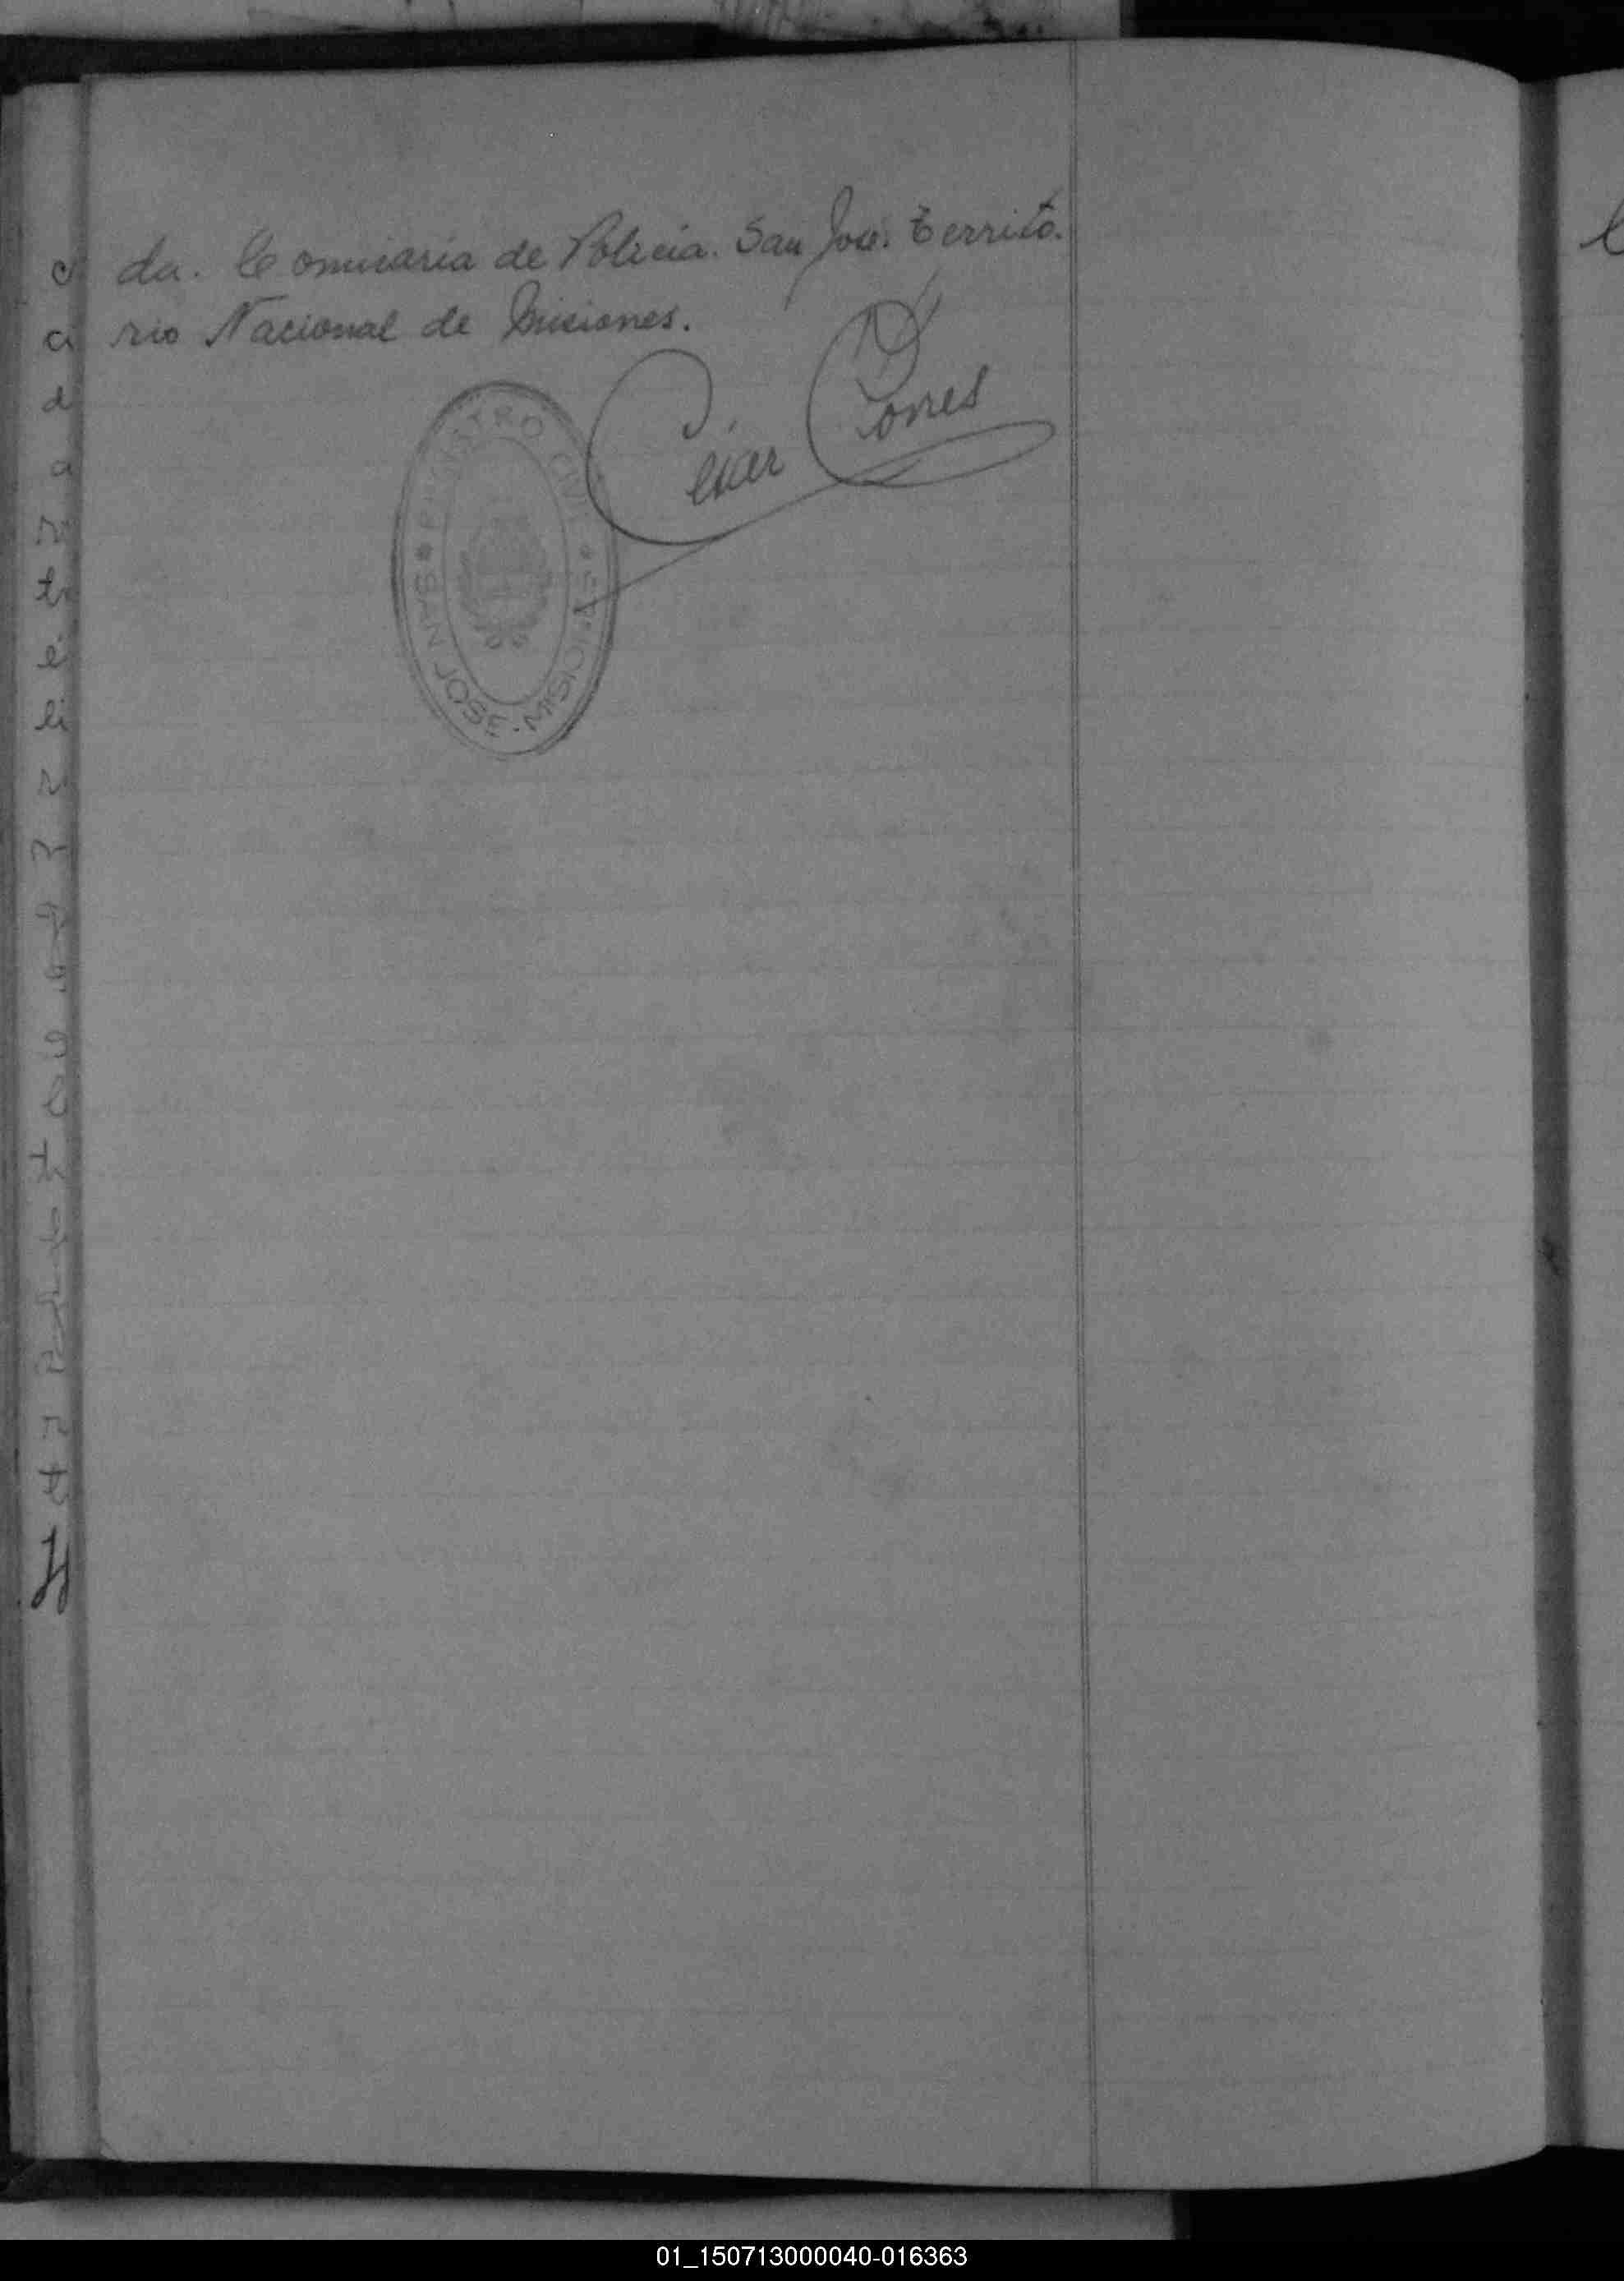 da. Comisaria de Policia. San José. Territo.
rio Nacional de Misiones.
Cesar Torres
REGISTRO CIVIL
SAN JOSE - MISIONES
01_150713000040-016363